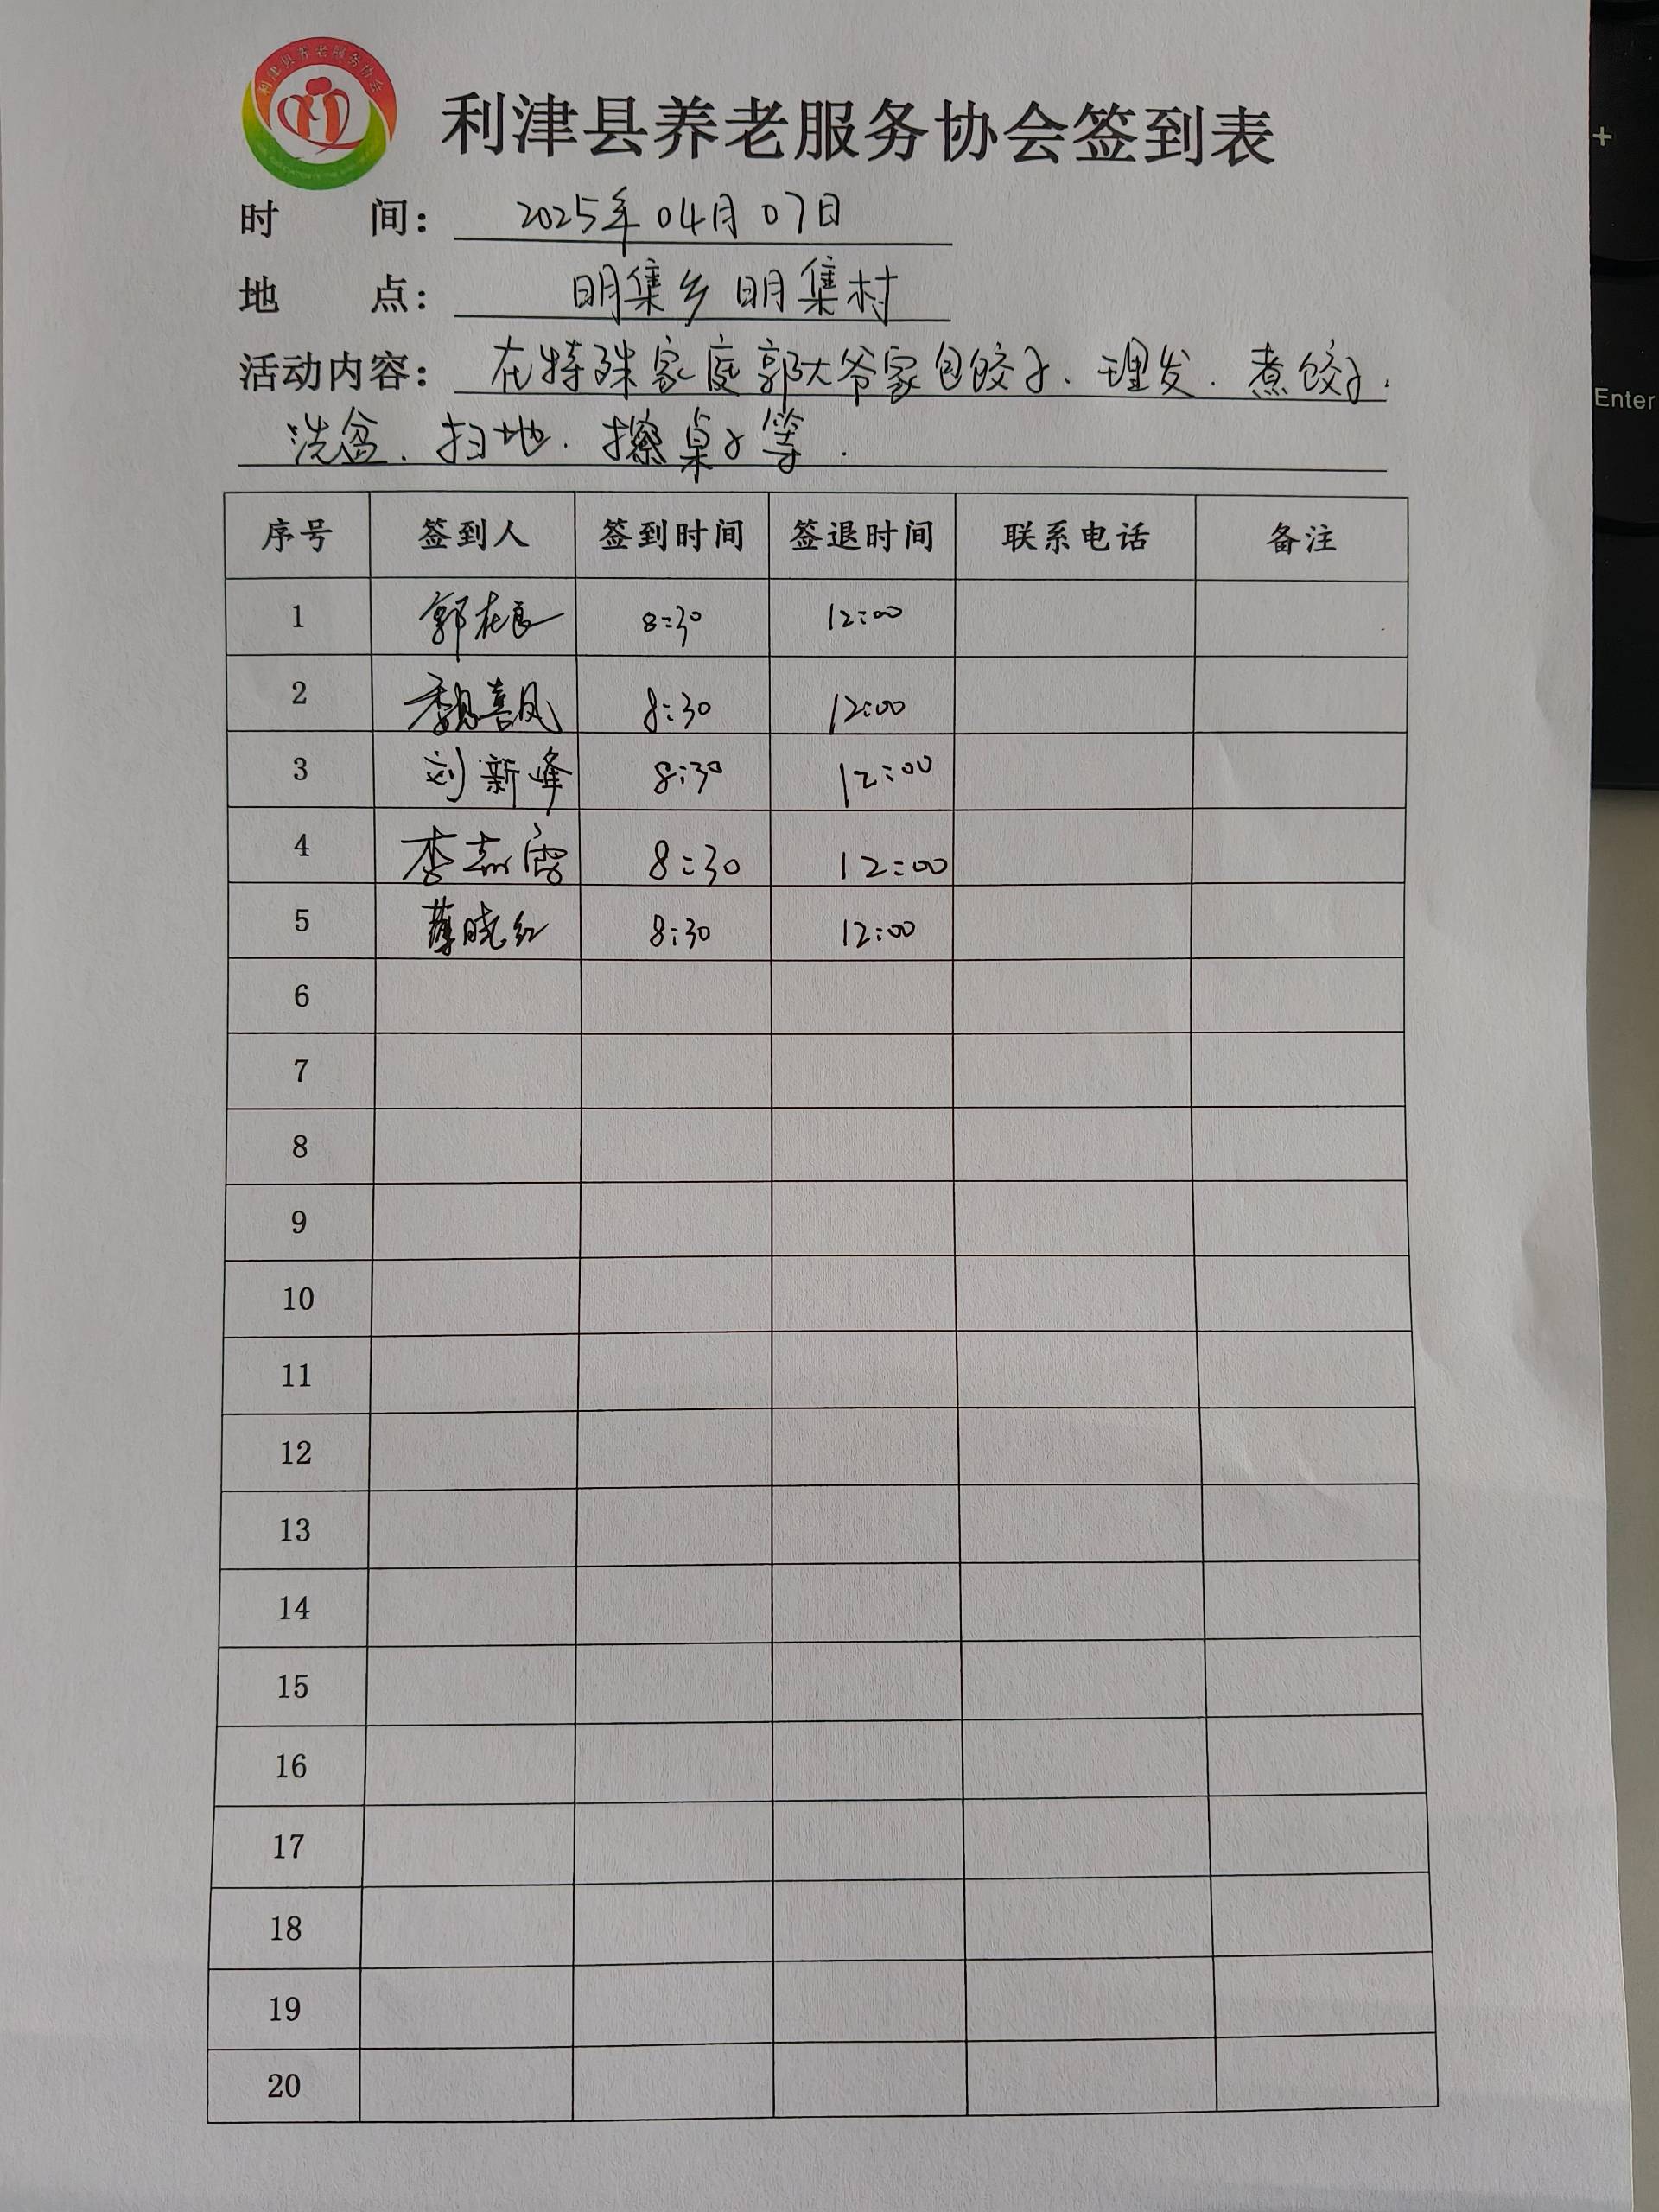 利津县养老服务协会
利津县养老服务协会签到表
时 间: 2025年04月07日
地 点: 明集乡明集村
活动内容: 在特殊家庭郭大爷家包饺子、理发、煮饺子、
洗盆、扫地、擦桌子等.
序号 签到人 签到时间 签退时间 联系电话 备注
1 郭在良 8:30 12:00
2 魏喜凤 8:30 12:00
3 刘新峰 8:30 12:00
4 李志 8:30 12:00
5 薄晓红 8:30 12:00
6
7
8
9
10
11
12
13
14
15
16
17
18
19
20
+
Enter